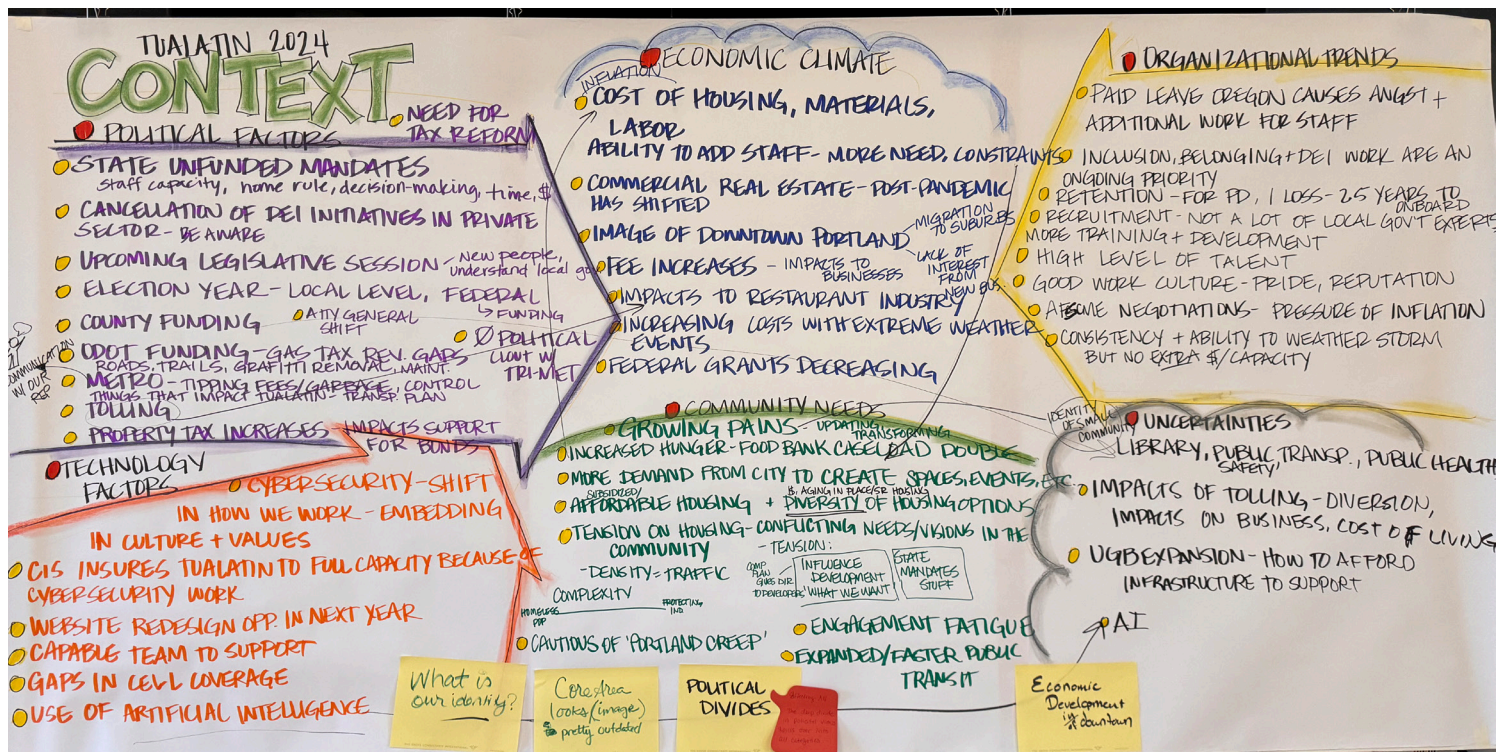 TUALATIN 2024
CONTEXT
POLITICAL FACTORS
NEED FOR
TAX REFORM
STATE UNFUNDED MANDATES
staff capacity, home rule, decision-making, time, $
CANCELLATION OF DEI INITIATIVES IN PRIVATE
SECTOR - BE AWARE
UPCOMING LEGISLATIVE SESSION - New people,
understand local gov
ELECTION YEAR - LOCAL LEVEL, FEDERAL
↳ FUNDING
COUNTY FUNDING
ATTY GENERAL
SHIFT
Ø POLITICAL
CLOUT W/
TRI-MET
ODOT FUNDING - GAS TAX REV. GAPS
ROADS, TRAILS, GRAFITTI REMOVAL, MAINT.
COMMUNICATION
W/ OUR
REP
METRO - TIPPING FEES/GARBAGE, CONTROL
THINGS THAT IMPACT TUALATIN - TRANSP. PLAN
TOLLING
PROPERTY TAX INCREASES IMPACTS SUPPORT
FOR BONDS
TECHNOLOGY
FACTORS
CYBERSECURITY - SHIFT
IN HOW WE WORK - EMBEDDING
IN CULTURE + VALUES
CIS INSURES TUALATIN TO FULL CAPACITY BECAUSE OF
CYBERSECURITY WORK
WEBSITE REDESIGN OPP. IN NEXT YEAR
CAPABLE TEAM TO SUPPORT
GAPS IN CELL COVERAGE
USE OF ARTIFICIAL INTELLIGENCE
ECONOMIC CLIMATE
INFLATION
COST OF HOUSING, MATERIALS,
LABOR
ABILITY TO ADD STAFF - MORE NEED, CONSTRAINTS
COMMERCIAL REAL ESTATE - POST-PANDEMIC
HAS SHIFTED
IMAGE OF DOWNTOWN PORTLAND
MIGRATION
TO SUBURBS
LACK OF
INTEREST
FROM
NEW BUS.
FEE INCREASES - IMPACTS TO
BUSINESSES
IMPACTS TO RESTAURANT INDUSTRY
INCREASING COSTS WITH EXTREME WEATHER
EVENTS
FEDERAL GRANTS DECREASING
COMMUNITY NEEDS
GROWING PAINS - UPDATING
TRANSFORMING
INCREASED HUNGER - FOOD BANK CASELOAD DOUBLE
MORE DEMAND FROM CITY TO CREATE SPACES, EVENTS, ETC.
SUBSIDIZED/
$, AGING IN PLACE/SR HOUSING
AFFORDABLE HOUSING + DIVERSITY OF HOUSING OPTIONS
TENSION ON HOUSING - CONFLICTING NEEDS/VISIONS IN THE
COMMUNITY
- DENSITY = TRAFFIC
COMPLEXITY
HOMELESS
POP
PROTECTING
IND
- TENSION:
COMP
PLAN
GIVES DIR.
TO DEVELOPERS
INFLUENCE
DEVELOPMENT
'WHAT WE WANT'
STATE
MANDATES
STUFF
CAUTIOUS OF 'PORTLAND CREEP'
ENGAGEMENT FATIGUE
EXPANDED/FASTER PUBLIC
TRANSIT
ORGANIZATIONAL TRENDS
PAID LEAVE OREGON CAUSES ANGST +
ADDITIONAL WORK FOR STAFF
INCLUSION, BELONGING + DEI WORK ARE AN
ONGOING PRIORITY
RETENTION - FOR PD, 1 LOSS - 2.5 YEARS TO
ONBOARD
RECRUITMENT - NOT A LOT OF LOCAL GOV'T EXPERTS
MORE TRAINING + DEVELOPMENT
HIGH LEVEL OF TALENT
GOOD WORK CULTURE - PRIDE, REPUTATION
AFSCME NEGOTIATIONS - PRESSURE OF INFLATION
CONSISTENCY + ABILITY TO WEATHER STORM
BUT NO EXTRA $/CAPACITY
IDENTITY
OF SMALL
COMMUNITY
UNCERTAINTIES
LIBRARY, PUBLIC TRANSP., PUBLIC HEALTH
SAFETY
IMPACTS OF TOLLING - DIVERSION,
IMPACTS ON BUSINESS, COST OF LIVING
UGB EXPANSION - HOW TO AFFORD
INFRASTRUCTURE TO SUPPORT
AI
What is
our identity?
Core Area
looks (image)
is pretty outdated
POLITICAL
DIVIDES
Economic
Development
in downtown